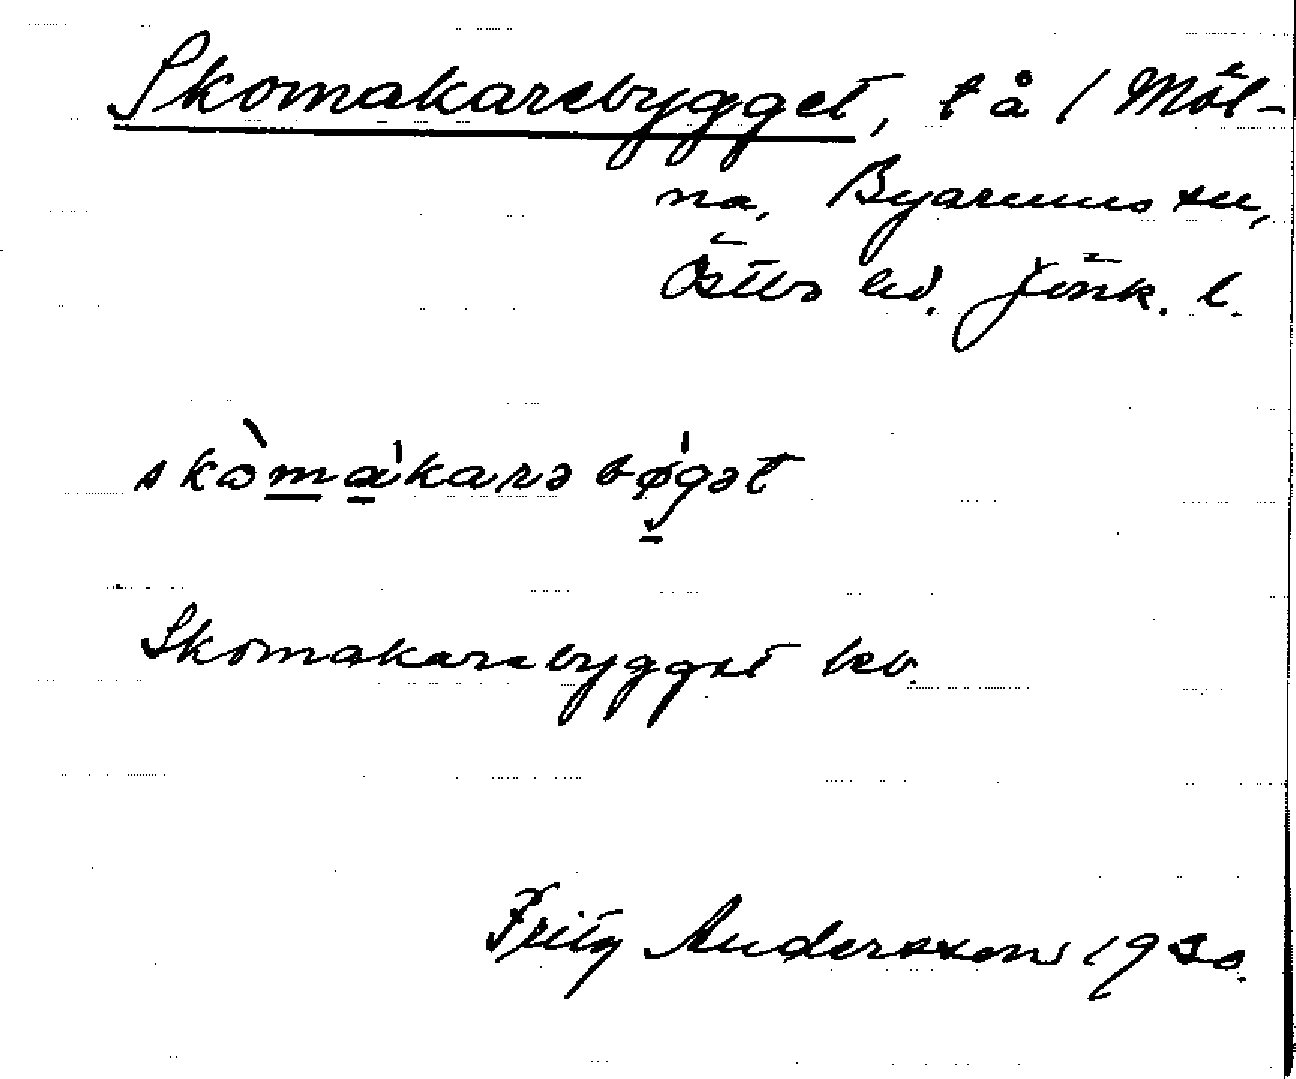 Skomakarebygget, t å / Möl-
na, Byarums sn,
Östbo hd. Jönk. l.
skòmákarə bǿgət
Skomakarebygget beb.
Fritz Andersson 1930.